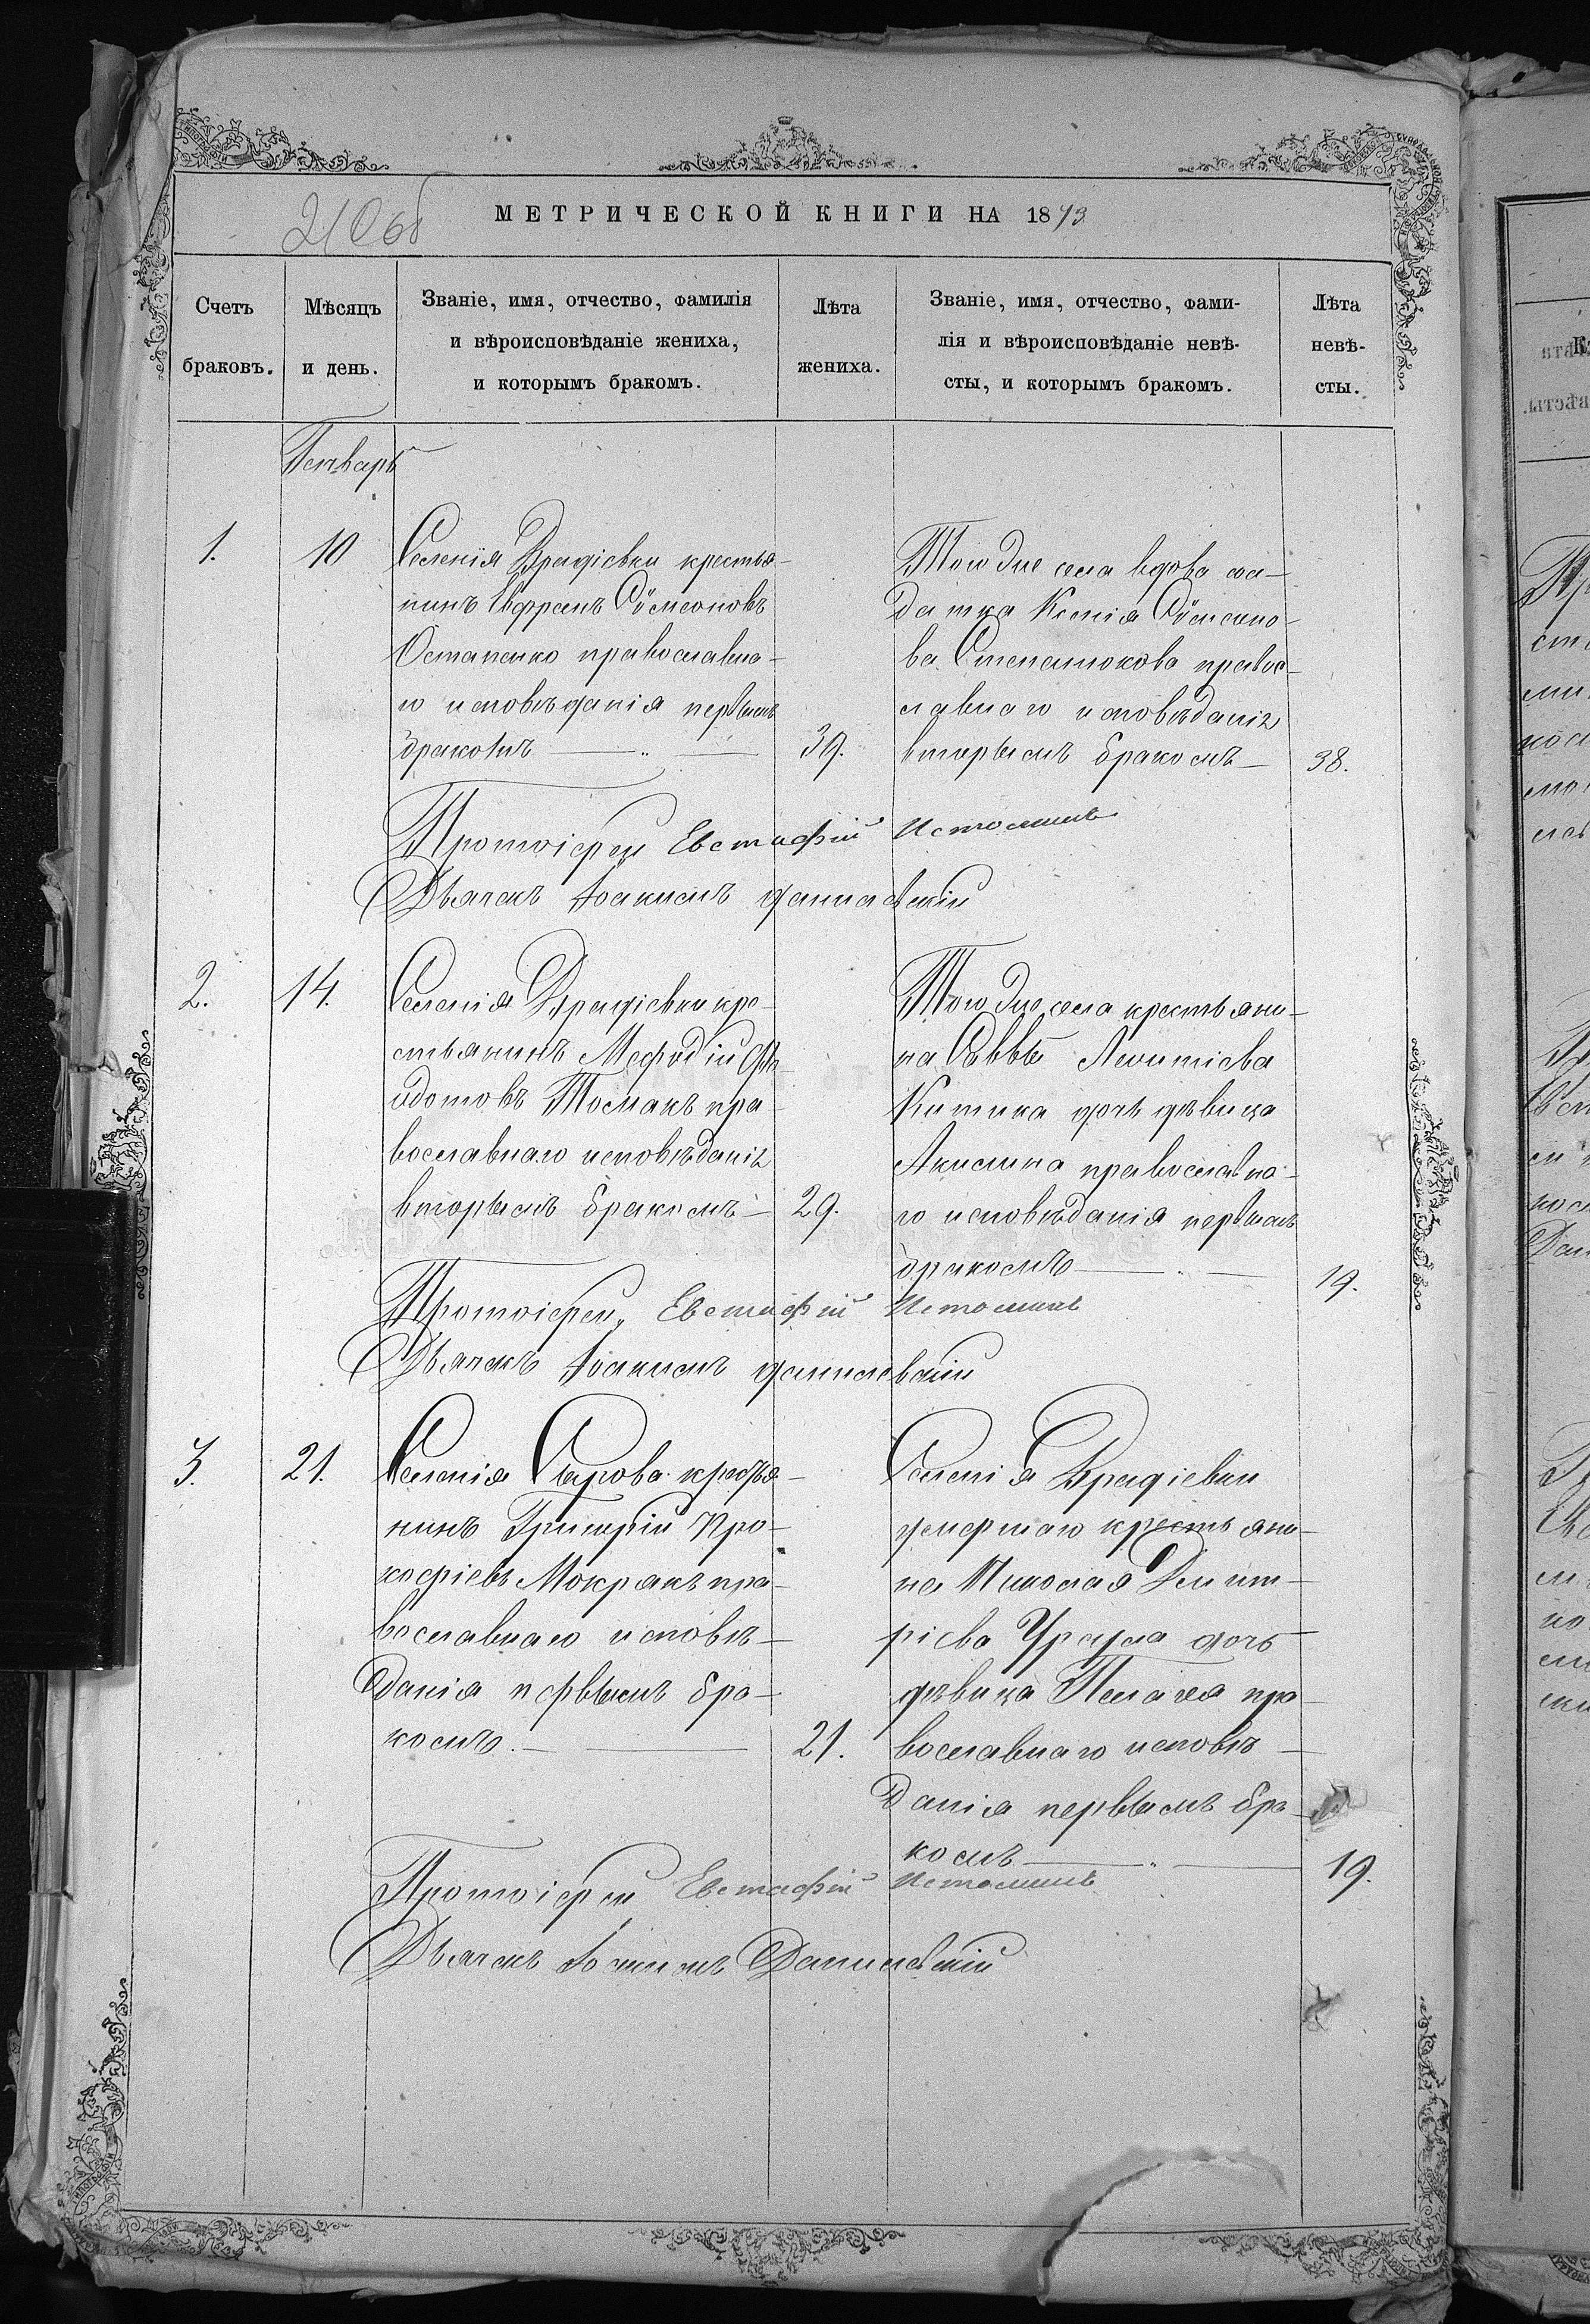 21 Об
МЕТРИЧЕСКОЙ КНИГИ НА 1873
Счетъ
браковъ.
Мѣсяцъ
и день.
Званіе, имя, отчество, фамилія
и вѣроисповѣданіе жениха,
и которымъ бракомъ.
Лѣта
жениха.
Званіе, имя, отчество, фами-
лія и вѣроисповѣданіе невѣ-
сты, и которымъ бракомъ.
Лѣта
невѣ-
сты.
Генварь
1.
10
Селенія Врадіевки крестья-
нинъ Евфремъ Сѵмеоновъ
Остапенко православна-
го исповѣданія первымъ
бракомъ
39.
Того же села вдова сол-
датка Ксенія Сѵмеоно-
ва Степанюкова правос-
лавнаго исповѣданія
вторымъ бракомъ
38.
Протоіерей Евстафій Истоминъ
Дьячекъ Іоакимъ Даниловскій
2.
14.
Селенія Врадіевки кре-
стьянинъ Мефодій Фе-
дотовъ Токмакъ пра-
вославнаго исповѣданія
вторымъ бракомъ
29.
Того же села крестьяни-
на Саввы Леонтіева
Китика дочь дѣвица
Акилина православна-
го исповѣданія первымъ
бракомъ
19.
Протоіерей Евстафій Истоминъ
Дьячекъ Іоакимъ Даниловскій
3.
21.
Селенія Сырова крестья-
нинъ Григорій Про-
кофіевъ Мокрякъ пра-
вославнаго исповѣ-
данія первымъ бра-
комъ.
21.
Селенія Врадіевки
умершаго крестьяни-
на Николая Димит-
ріева дочь
дѣвица Пелагея пра-
вославнаго исповѣ-
данія первымъ бра-
комъ
19.
Протоіерей Евстафій Истоминъ
Дьячекъ Іоакимъ Даниловскій